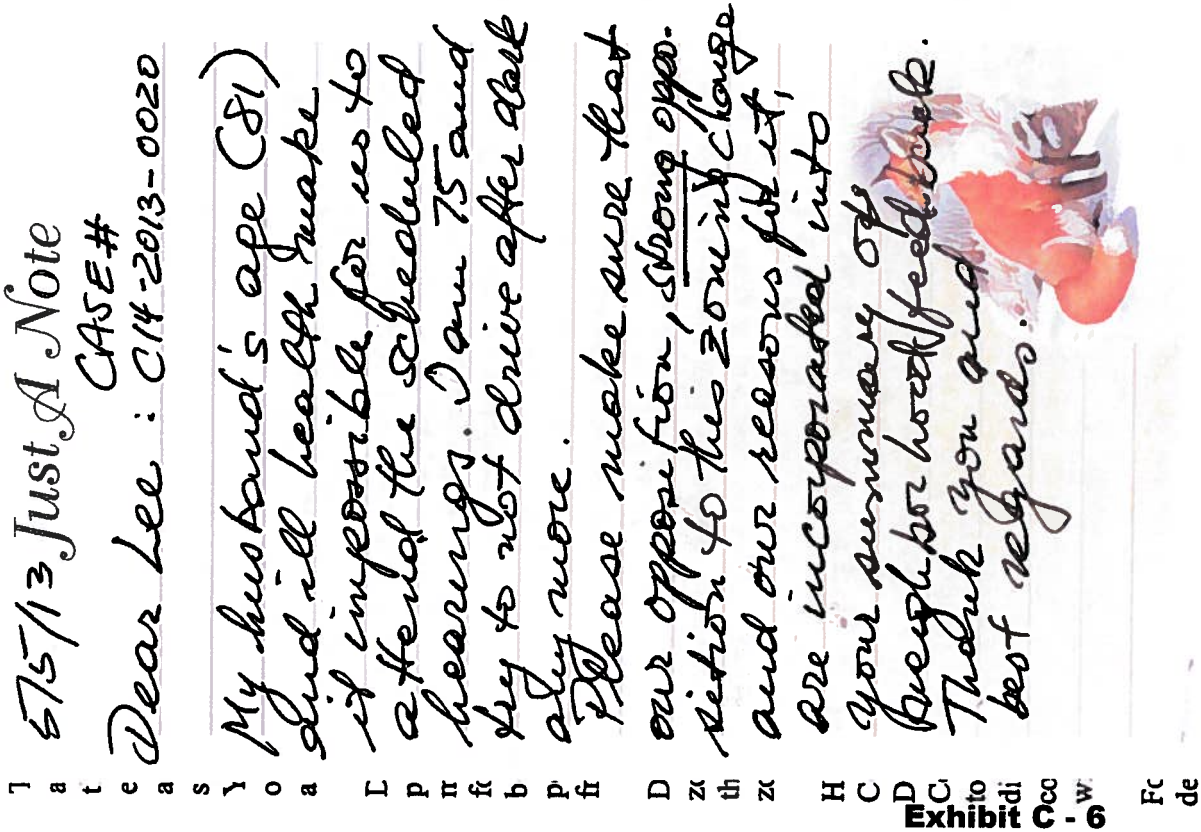 5/5/13 Just A Note
CASE#
Dear Lee: C14-2013-0020
My husband's age (81)
and ill health make
it impossible for us to
attend the scheduled
hearings. I am 75 and
try to not drive after dark
any more.
Please make sure that
our opposition, strong oppo-
sition to this zoning change
and our reasons for it,
are incorporated into
your summary of
neighborhood feedback.
Thank you and
best regards.
T
a
t
e
a
s
Y
o
a
D
p
n
fo
b
p
fr
D
zo
th
zo
H
C
D
C
to
di
co
w
Fo
de
Exhibit C - 6